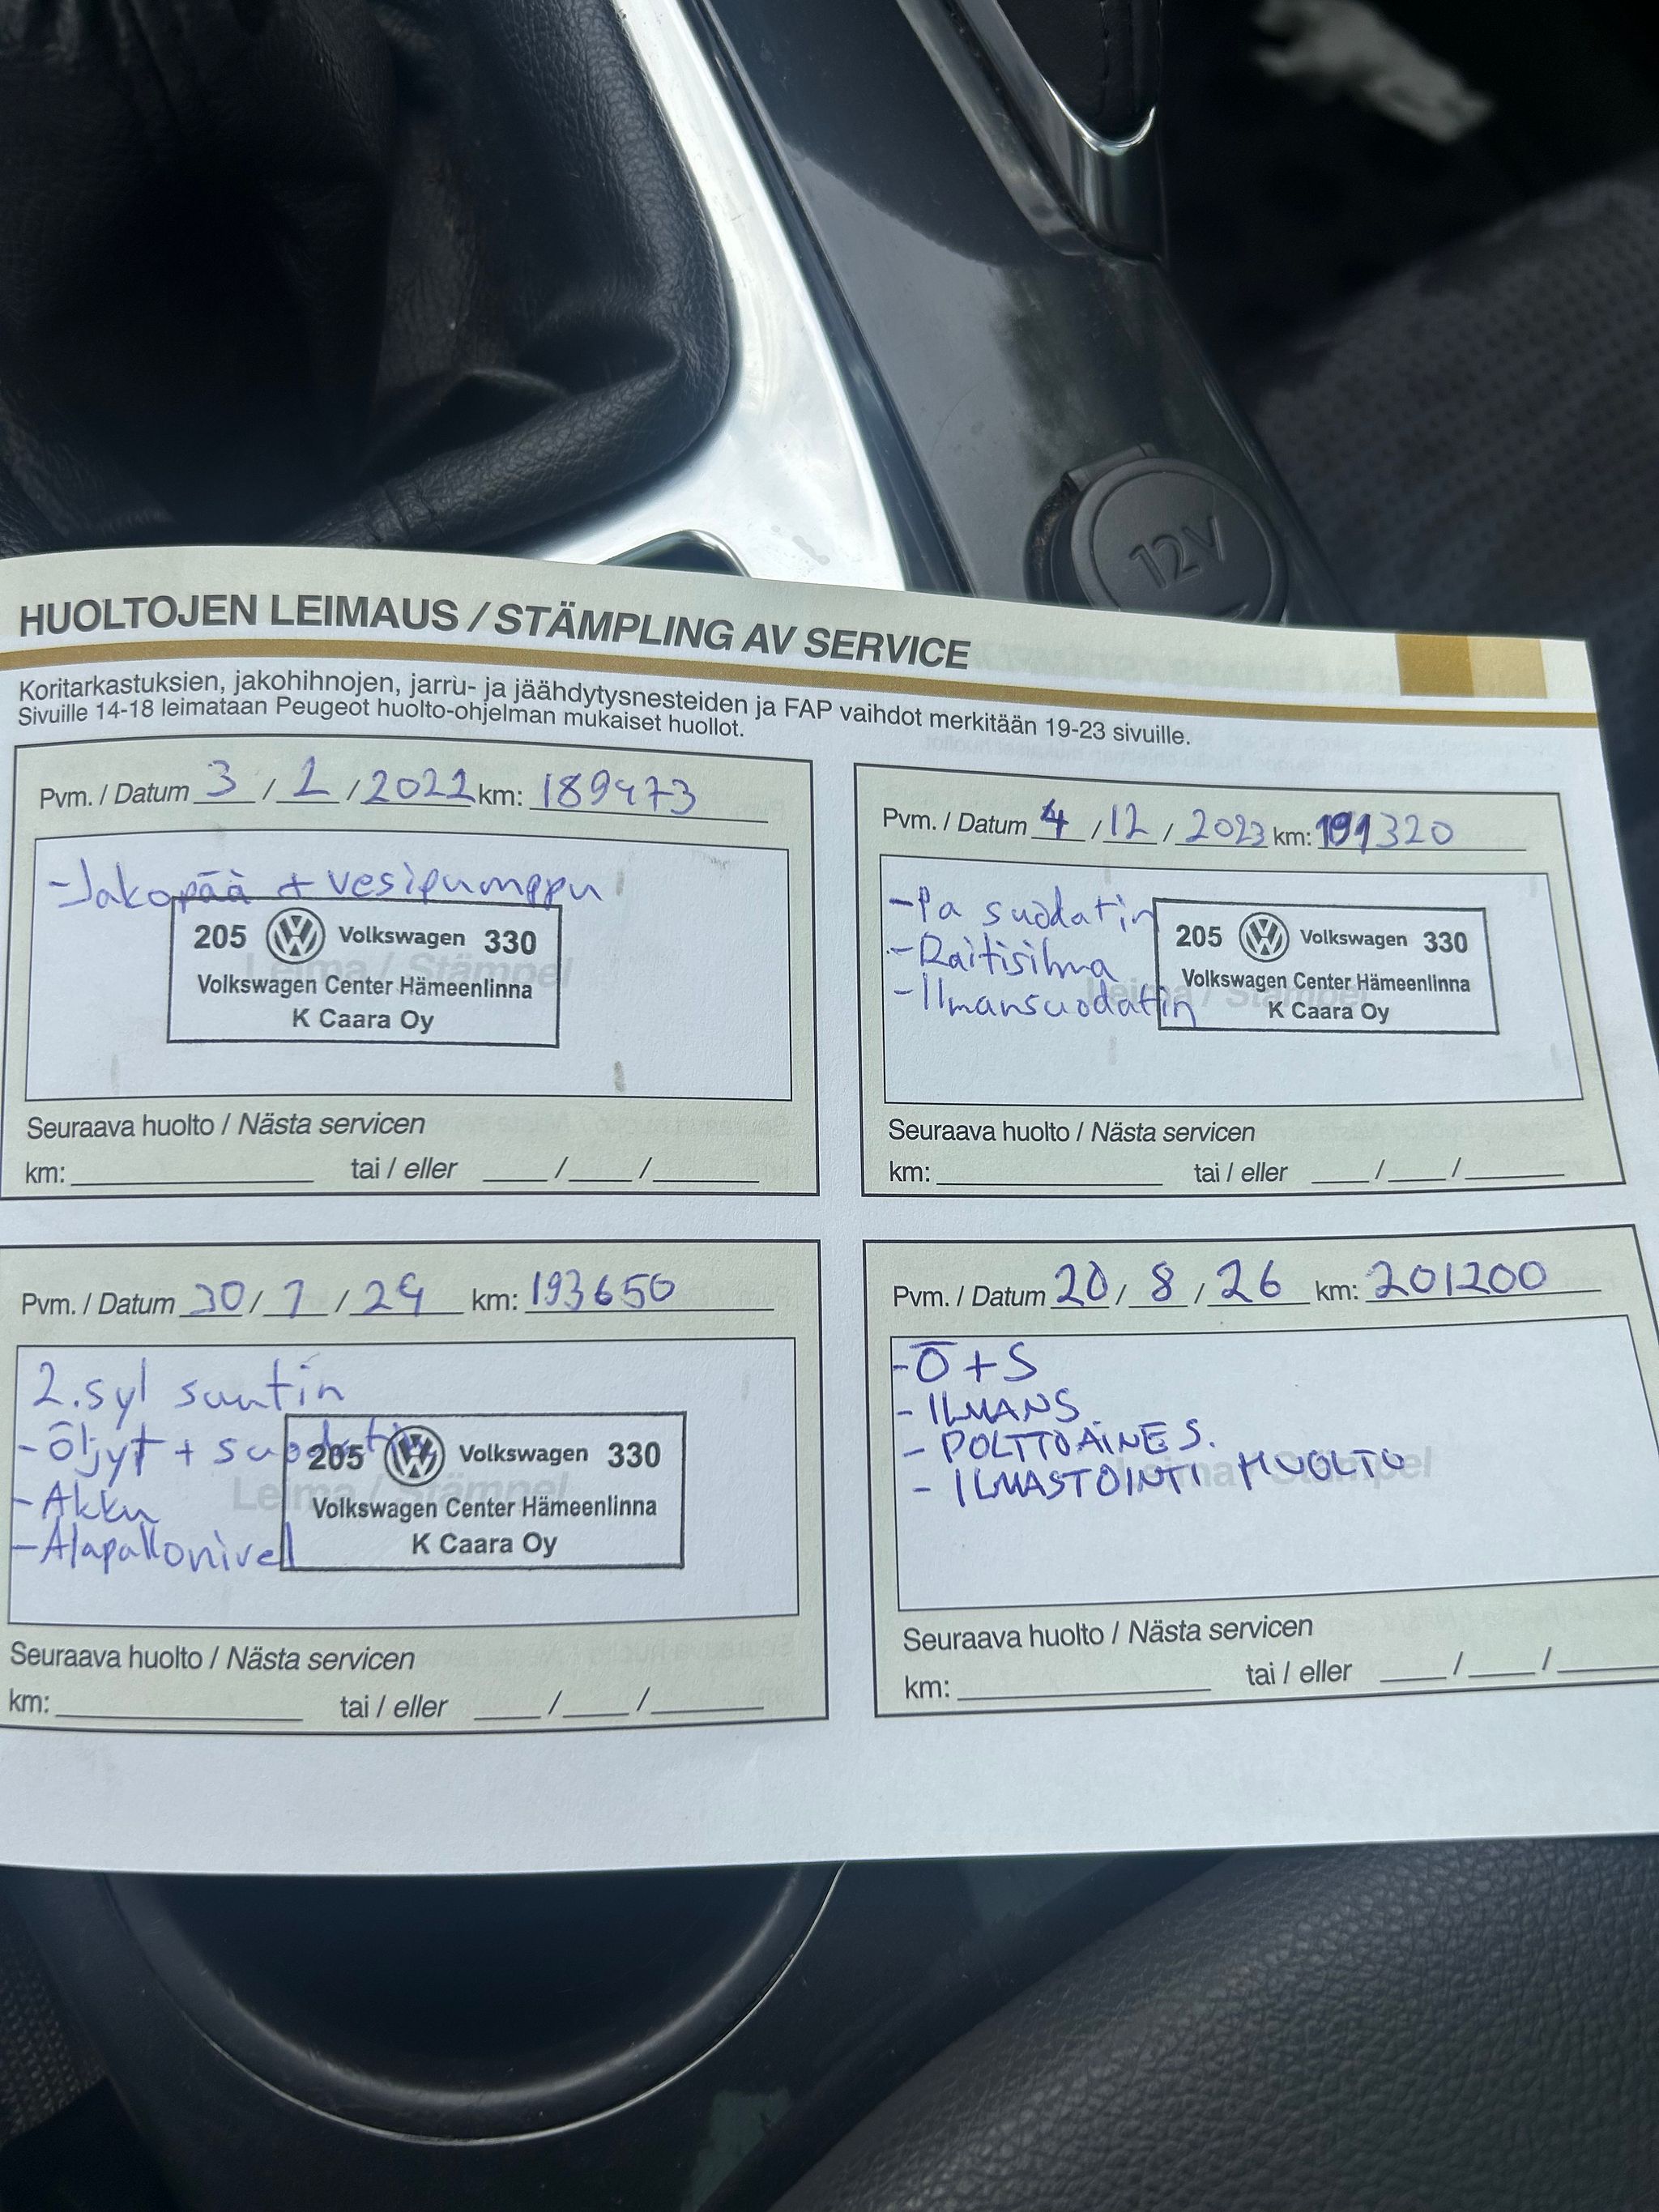 12V
HUOLTOJEN LEIMAUS / STÄMPLING AV SERVICE
Koritarkastuksien, jakohihnojen, jarru- ja jäähdytysnesteiden ja FAP vaihdot merkitään 19-23 sivuille.
Sivuille 14-18 leimataan Peugeot huolto-ohjelman mukaiset huollot.
Pvm. / Datum 3 / 1 / 2022 km: 189473
-Jakopää + vesipumppu
205 Volkswagen 330
Leima / Stämpel
Volkswagen Center Hämeenlinna
K Caara Oy
Seuraava huolto / Nästa servicen
km: tai / eller / /
Pvm. / Datum 4 / 12 / 2023 km: 191320
-Pa suodatin
-Raitisilma
-Ilmansuodatin
205 Volkswagen 330
Volkswagen Center Hämeenlinna
Leima / Stämpel
K Caara Oy
Seuraava huolto / Nästa servicen
km: tai / eller / /
Pvm. / Datum 30 / 7 / 24 km: 193650
2.syl suutin
-Öljyt + suodatin
-Akku
-Alapallonivel
205 Volkswagen 330
Leima / Stämpel
Volkswagen Center Hämeenlinna
K Caara Oy
Seuraava huolto / Nästa servicen
km: tai / eller / /
Pvm. / Datum 20 / 8 / 26 km: 201200
-Ö+S
- ILMANS.
- POLTTOAINE S.
- ILMASTOINTI HUOLTO
Leima / Stämpel
Seuraava huolto / Nästa servicen
km: tai / eller / /